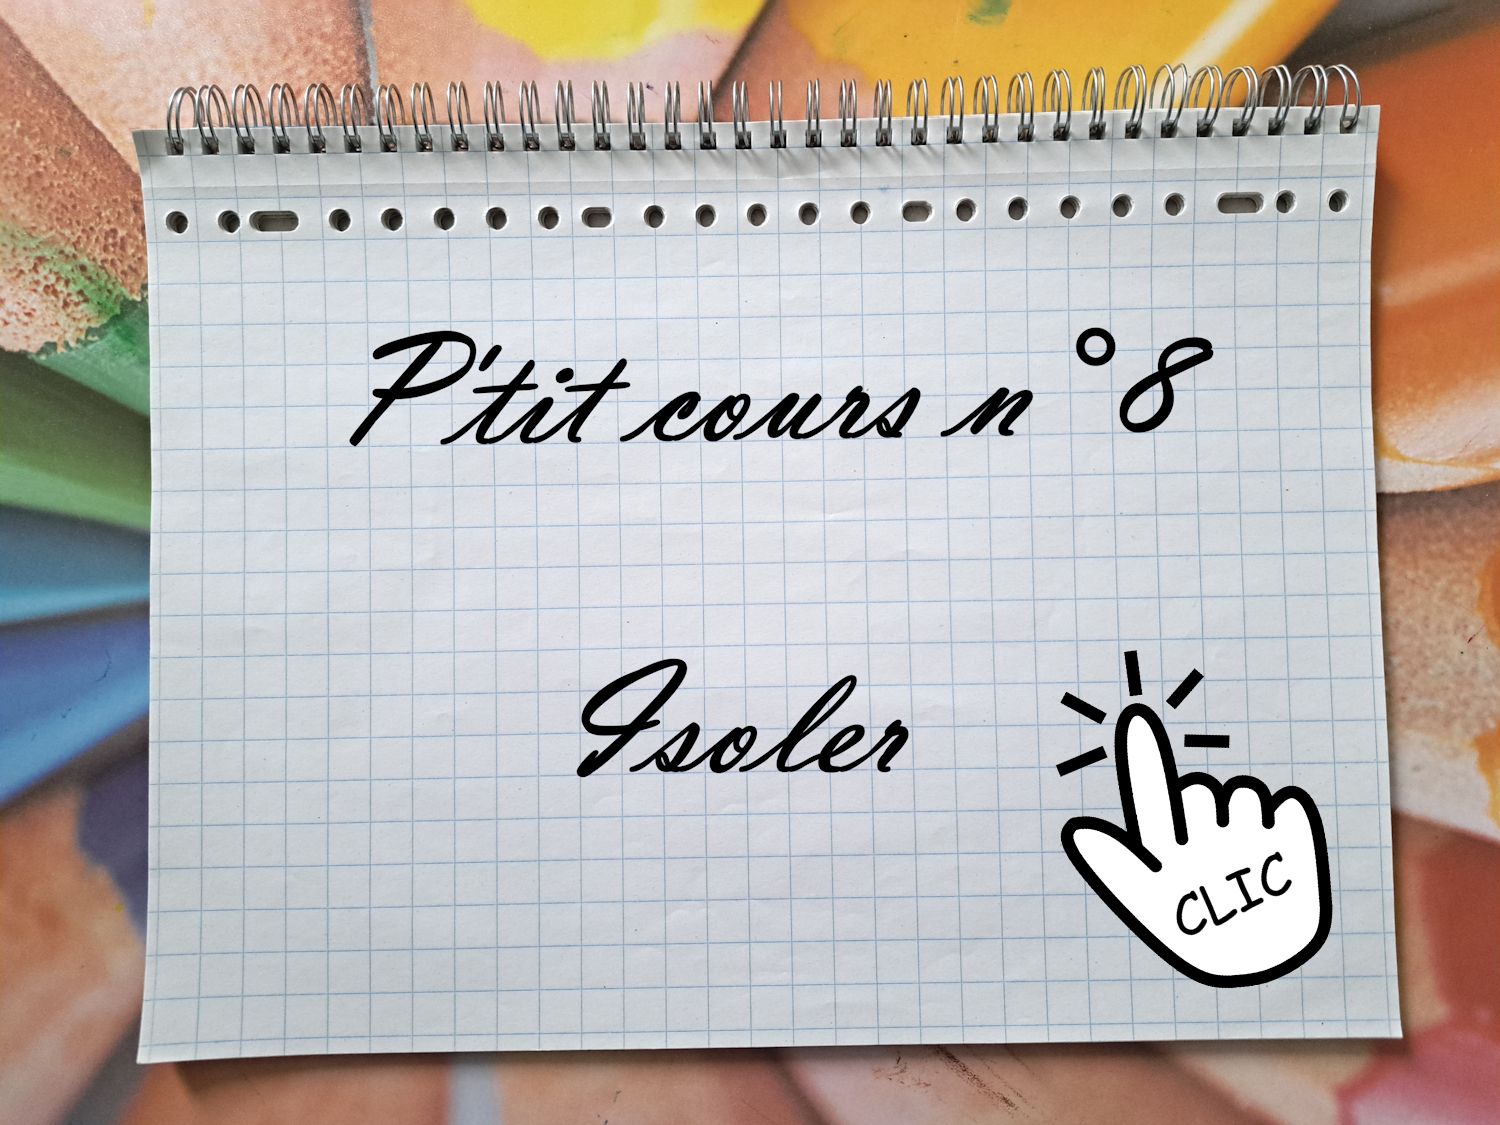 P'tit cours n°8
Isoler
CLIC